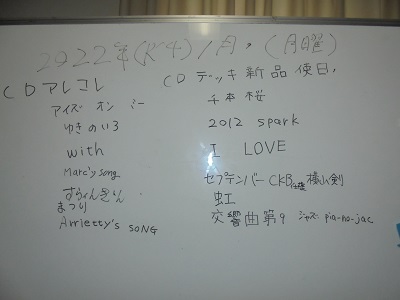 2022年(R4)1月,(月曜)
CDアレコレ
アイズ オン ミー
ゆきのいろ
with
Marc'y song
まつり
Arrietty's SONG
CD デッキ新品 使日,
千本桜
2012 spark
I LOVE
セプテンバー CKB 横山剣
虹
交響曲第9 ジャズ pia-no-jac